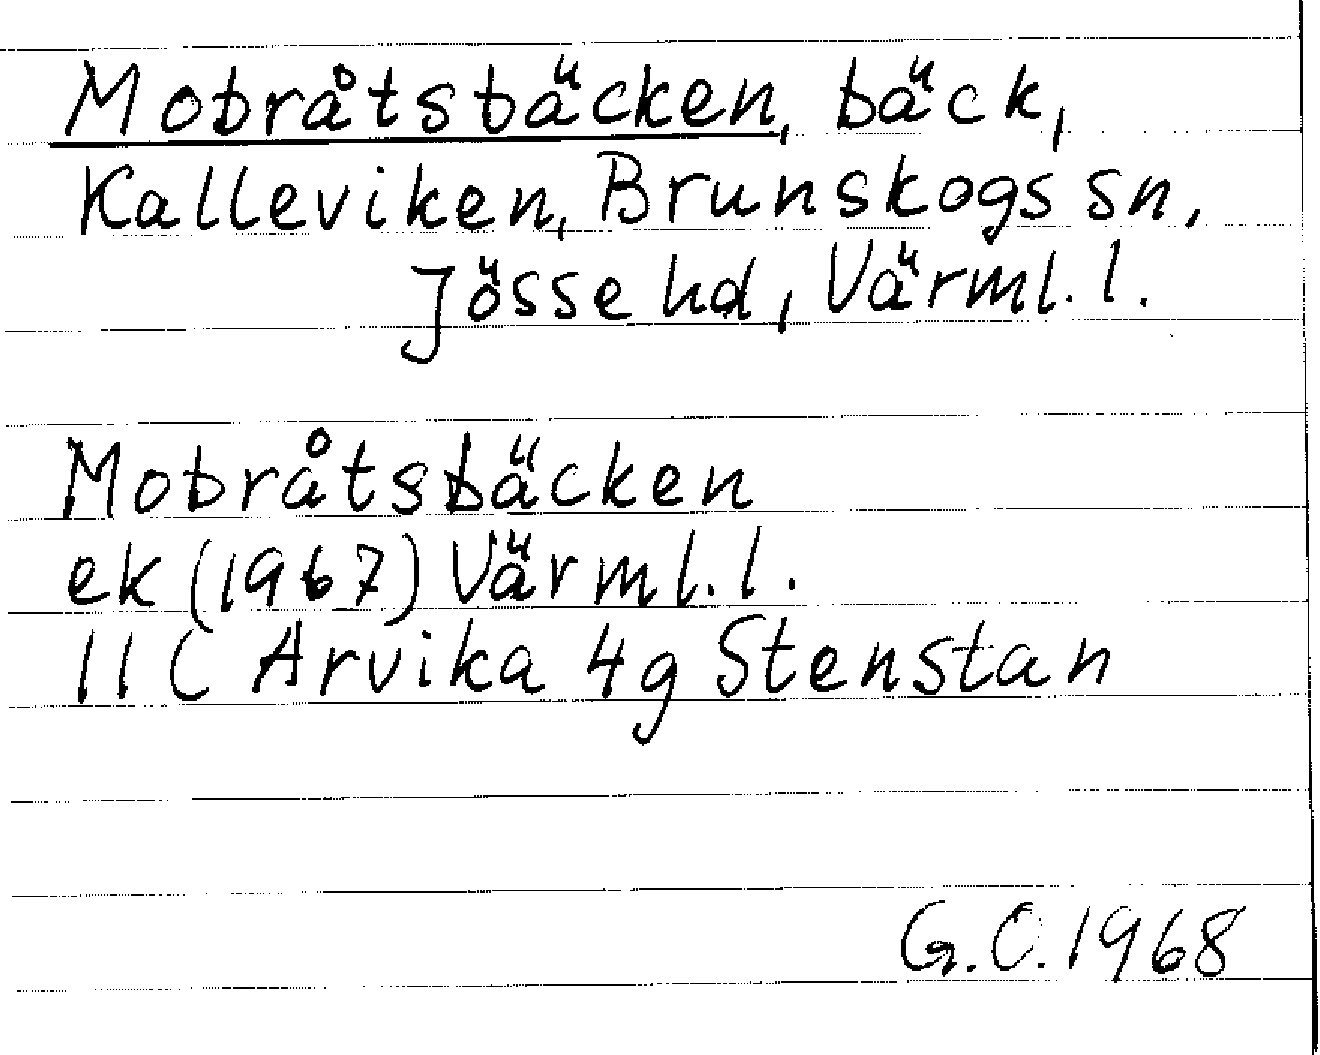 Mobråtsbäcken, bäck,
Kalleviken, Brunskogs sn,
Jösse hd, Värml. l.
Mobråtsbäcken
ek (1967) Värml. l.
11 C Arvika 4g Stenstan
G.O. 1968